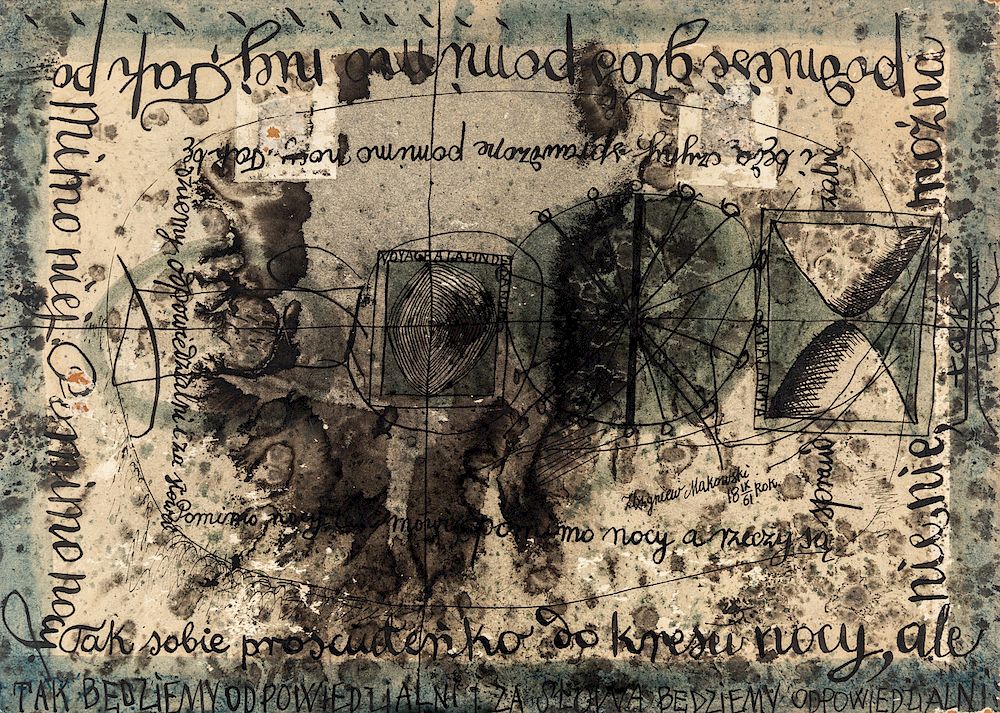 Tak sobie prościuteńko do kresu nocy, ale
nie, nie, można
podnieść głos pomimo niej. Tak po
pomimo niej. Pomimo nocy.
Pomimo nocy pomimo nocy a rzeczy są
i będą czyny sprawdzone pomimo nocy. Tak bę
dziemy odpowiedzialni i za słowa
VOYAGE A LA FIN DE
ATALANTA
tak
tak
Zbigniew Makowski
18 IX 61 rok.
TAK BĘDZIEMY ODPOWIEDZIALNI I ZA SŁOWA BĘDZIEMY ODPOWIEDZIALNI